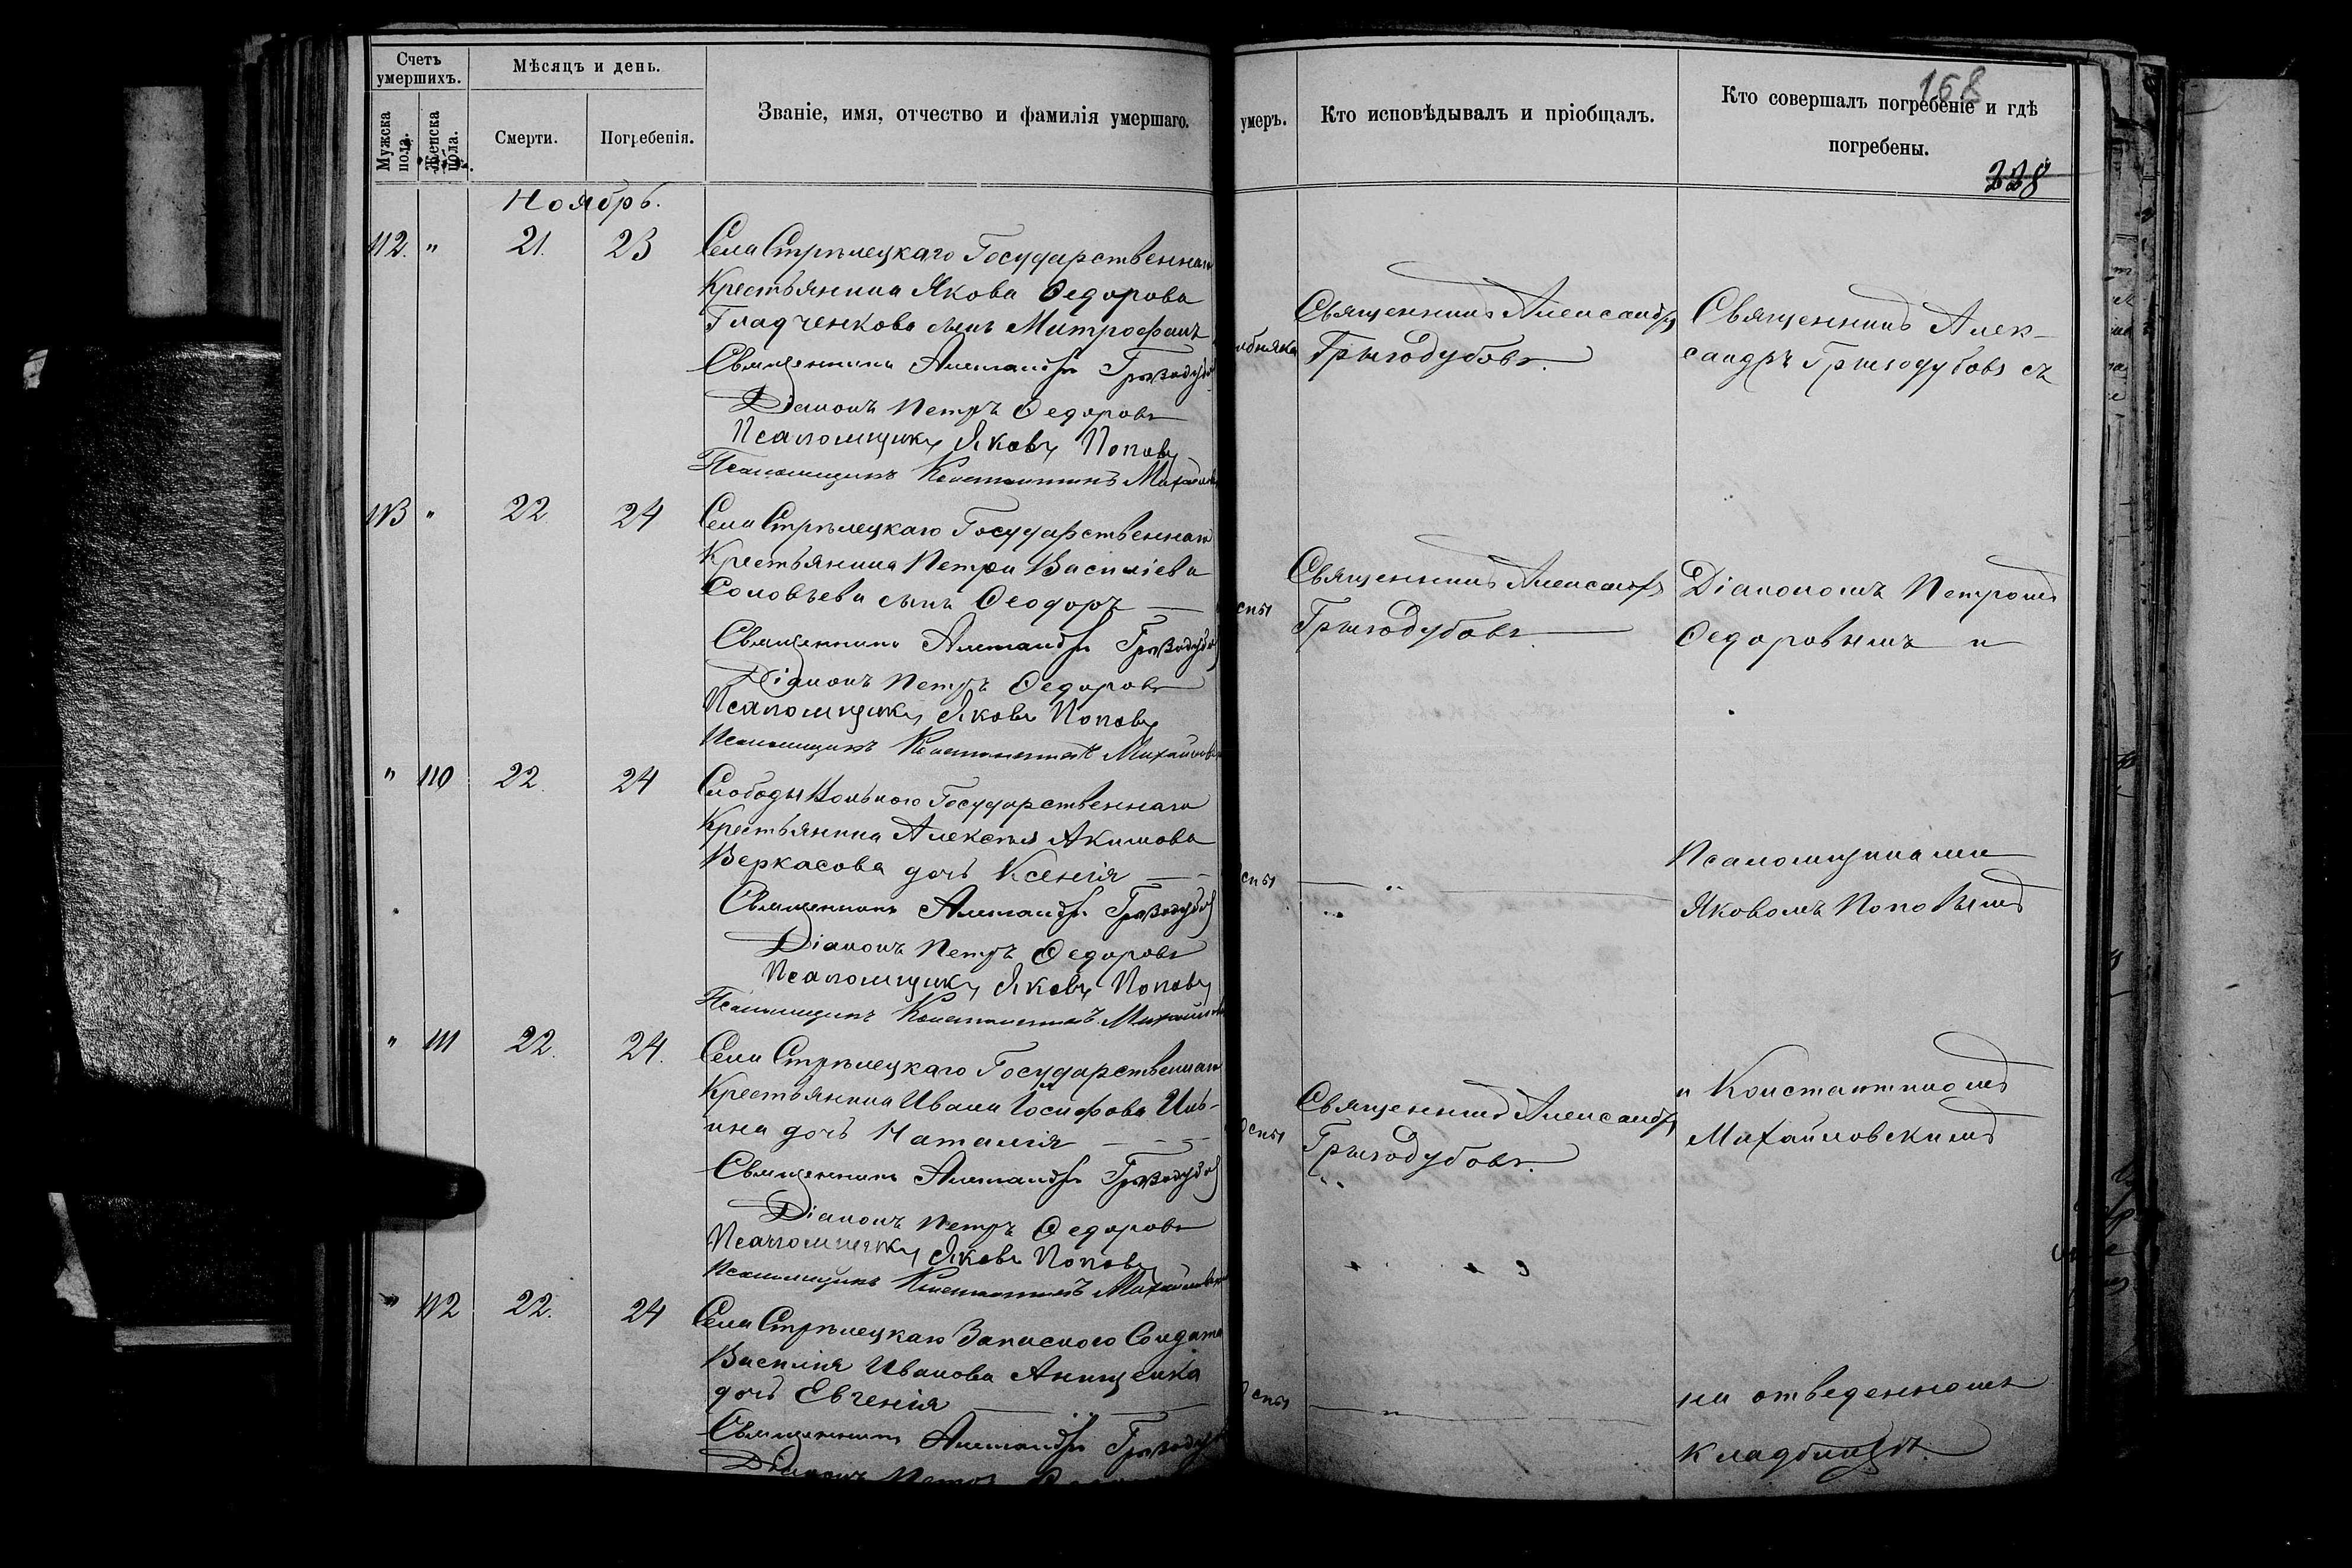 Счетъ
умершихъ.
Мѣсяцъ и день.
Мужска
пола.
Женска
пола.
Смерти.
Погребенія.
Званіе, имя, отчество и фамилія умершаго.
Ноябрь.
112. " 21. 23
Села Стрѣлецкаго Государственнаго
Крестьянина Якова Ѳедорова
Гладченкова сынъ Митрофанъ
Священникъ Александръ Гризодубовъ
Діаконъ Петръ Ѳедоровъ
Псаломщикъ Яковъ Поповъ
Псаломщикъ Константинъ Михайловскій
113 " 22. 24
Села Стрѣлецкаго Государственнаго
Крестьянина Петра Василіева
Соловьева сынъ Ѳеодоръ —
Священникъ Александръ Гризодубовъ
Діаконъ Петръ Ѳедоровъ
Псаломщикъ Яковъ Поповъ
Псаломщикъ Константинъ Михайловскій
" 110 22. 24
Слободы Вольного Государственнаго
Крестьянина Алексѣя Акимова
Веркасова дочь Ксенія —
Священникъ Александръ Гризодубовъ
Діаконъ Петръ Ѳедоровъ
Псаломщикъ Яковъ Поповъ
Псаломщикъ Константинъ Михайловскій
" 111 22. 24.
Села Стрѣлецкаго Государственнаго
Крестьянина Ивана Іосифова Иль-
ина дочь Наталія —
Священникъ Александръ Гризодубовъ
Діаконъ Петръ Ѳедоровъ
Псаломщикъ Яковъ Поповъ
Псаломщикъ Константинъ Михайловскій
" 112 22. 24
Села Стрѣлецкаго Запасного Солдата
Василія Иванова Анищенка
дочь Евгенія —
Священникъ Александръ Гризодубовъ
Діаконъ Петръ
умеръ.
Кто исповѣдывалъ и пріобщалъ.
Кто совершалъ погребеніе и гдѣ
погребены.
168
228
Священникъ Александръ
Гризодубовъ.
Священникъ Алек-
сандръ Гризодубовъ съ
оспы
Священникъ Александръ
Гризодубовъ
Діакономъ Петромъ
Ѳедоровымъ и
оспы
— " —
Псаломщиками
Яковомъ Поповымъ
оспы
Священникъ Александръ
Гризодубовъ.
и Константиномъ
Михайловскимъ
оспы
— " —
на отведенномъ
кладбищѣ.